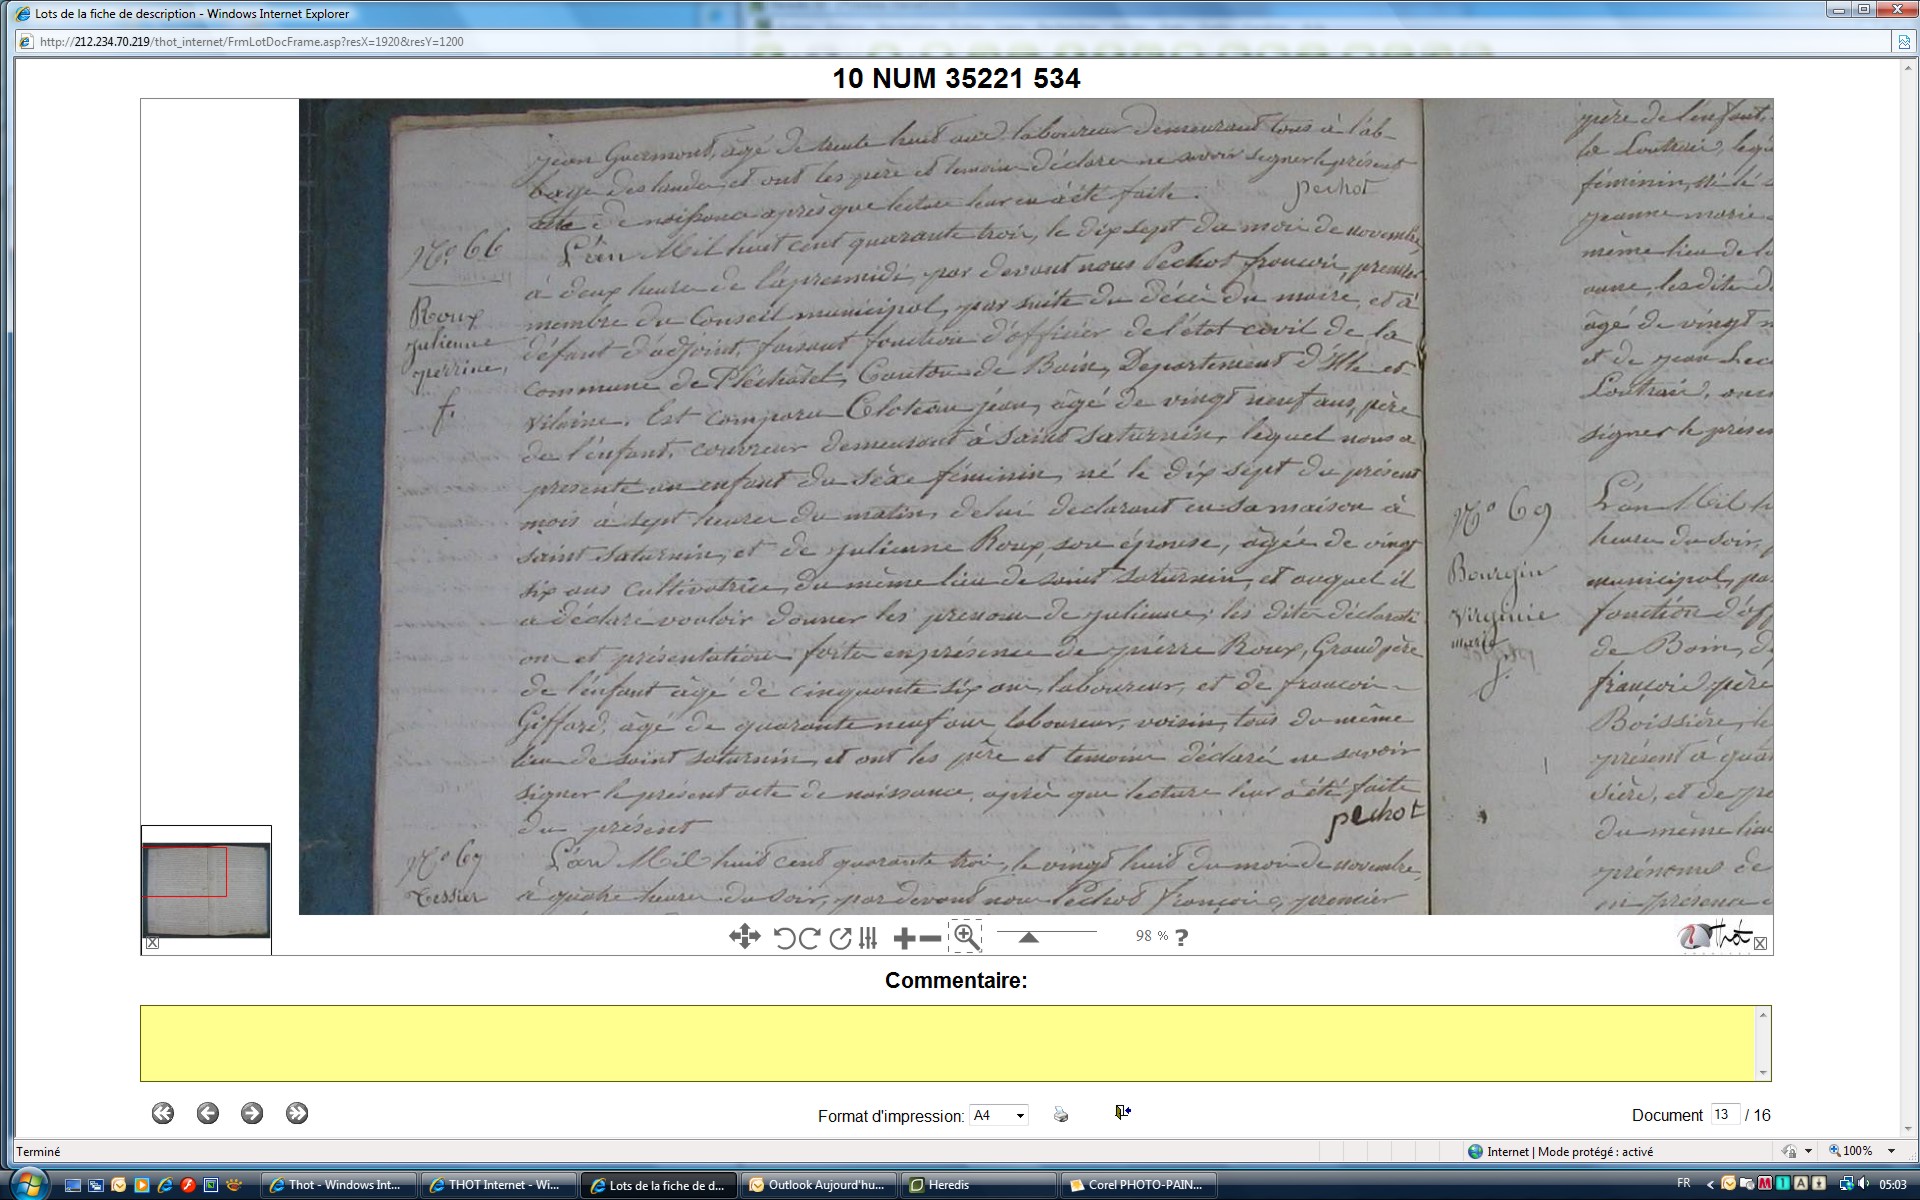 Lots de la fiche de description - Windows Internet Explorer
http://212.234.70.219/thot_internet/FrmLotDocFrame.asp?resX=1920&resY=1200
10 NUM 35221 534
jean Guermont, âgé de trente huit ans, laboureur demeurant tous à l'ab-
baye des landes et ont les père et temoins déclaré ne savoir signer le présent
acte de naissance après que lecture leur en a été faite.
pechot
N.º 66
Roux
julienne
perrine,
f.
L'an Mil huit cent quarante trois, le dix sept du mois de novembre,
à deux heure de l'apresmidi, par devant nous Pechot françois, premier
membre du Conseil municipal, par suite du décès du maire, et à
défaut d'adjoint, faisant fonction d'officier de l'état civil de la
commune de Pléchâtel, Canton de Bain, Departement d'Ille et
Vilaine. Est comparu Cloteau jean, âgé de vingt neuf ans, père
de l'enfant, couvreur demeurant à saint saturnin, lequel nous a
presenté un enfant du séxe féminin, né le dix sept du présent
mois à sept heures du matin, de lui declarant en sa maison à
saint saturnin, et de julienne Roux, son épouse, âgée de vingt
six ans cultivatrice, du même lieu de saint saturnin, et auquel il
a déclaré vouloir donner les prenoms de julienne; les dites déclarati
on et présentation faites en présence de pierre Roux, Grand père
de l'enfant âgé de cinquante six ans, laboureur, et de françois
Giffard, âgé de quarante neuf ans laboureur, voisin, tous du même
lieu de saint saturnin, et ont les père et temoins déclaré ne savoir
signer le présent acte de naissance, après que lecture leur a été faite
du présent
pechot
N.º 67
Tessier
L'an Mil huit cent quarante trois, le vingt huit du mois de novembre,
à quatre heures du soir, par devant nous Pechot François, premier
père de l'enfant,
la Loutrais, lequ
féminin, né le
jeanne marie
même lieu de l
anne, les dites d
âgé de vingt n
et de jean
Loutrais,
signer le presen
N.º 69
Bourgin
Virginie
marie
f.
L'an Mil h
heures du soir, p
municipal, pa
fonction d'off
de Bain, D
françois, père
Boissière, le
présent à qua
sière, et de
du même lieu
prénoms de
en présence
98 % ?
Thot
Commentaire:
Format d'impression: A4
Document 13 / 16
Terminé
Internet | Mode protégé : activé
100%
Thot - Windows Int...
THOT Internet - Wi...
Lots de la fiche de d...
Outlook Aujourd'hu...
Heredis
Corel PHOTO-PAIN...
FR
05:03